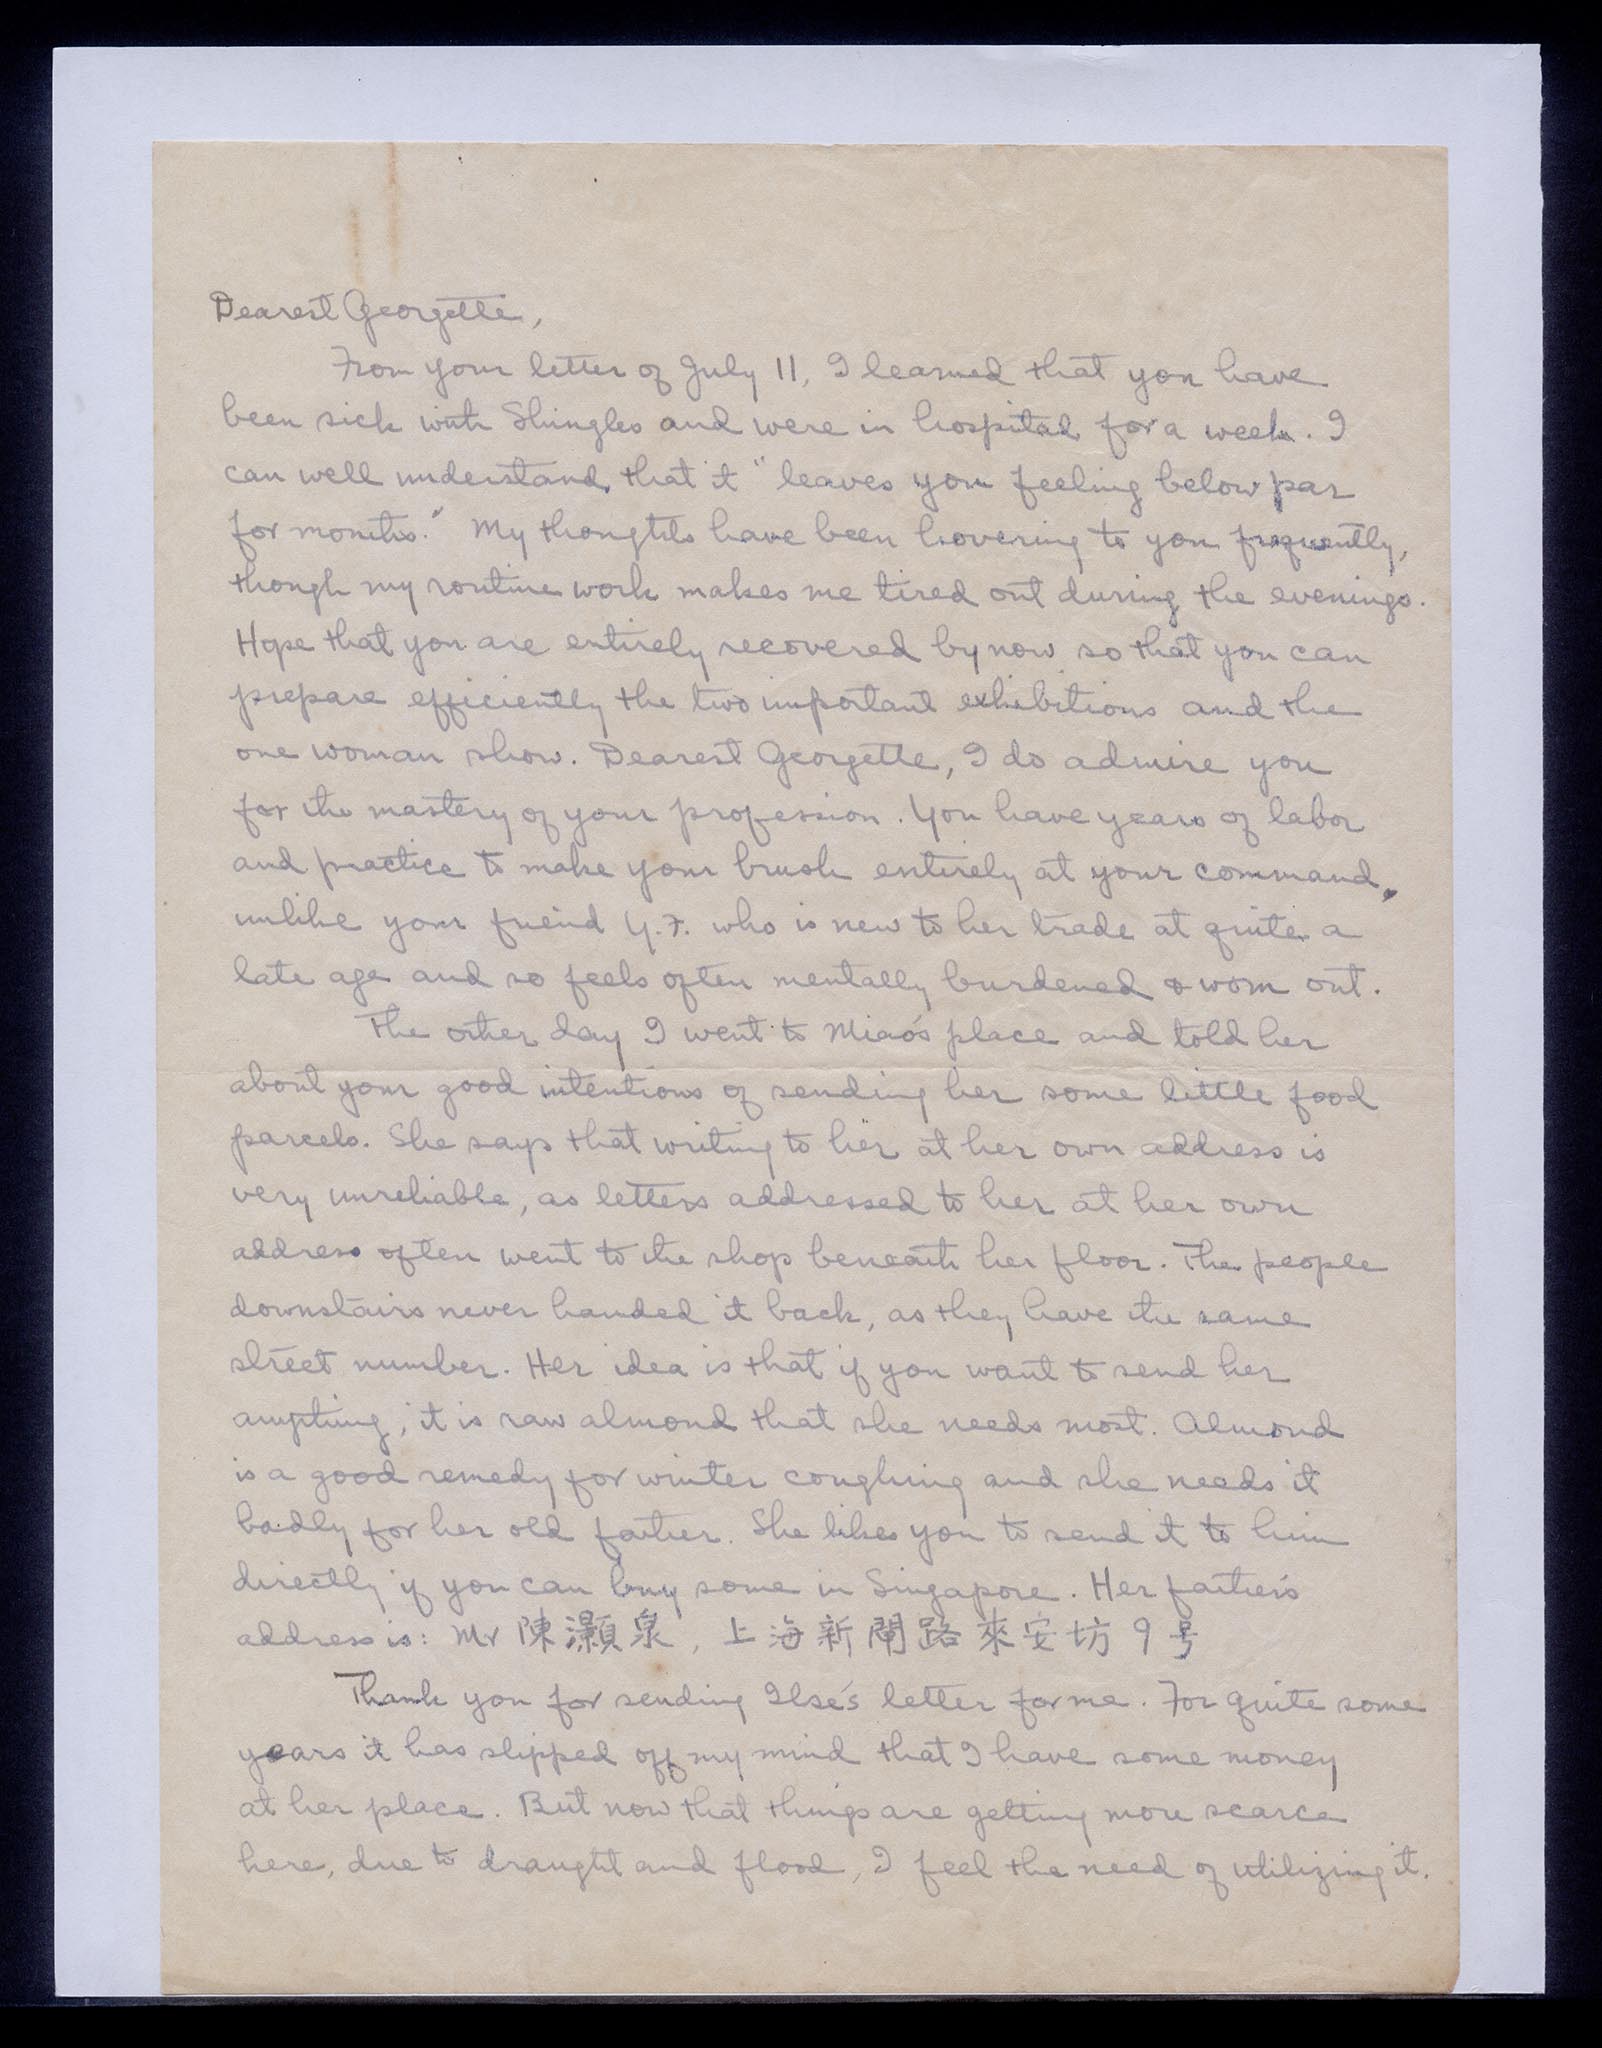 Dearest Georgette,
From your letter of July 11, I learned that you have
been sick with Shingles and were in hospital for a week. I
can well understand that it "leaves you feeling below par
for months." My thoughts have been hovering to you frequently,
though my routine work makes me tired out during the evenings.
Hope that you are entirely recovered by now so that you can
prepare efficiently the two important exhibitions and the
one woman show. Dearest Georgette, I do admire you
for the mastery of your profession. You have years of labor
and practice to make your brush entirely at your command,
unlike your friend Y.F. who is new to her trade at quite a
late age and so feels often mentally burdened & worn out.
The other day I went to Miao's place and told her
about your good intentions of sending her some little food
parcels. She says that writing to her at her own address is
very unreliable, as letters addressed to her at her own
address often went to the shop beneath her floor. The people
downstairs never handed it back, as they have the same
street number. Her idea is that if you want to send her
anything, it is raw almond that she needs most. Almond
is a good remedy for winter coughing and she needs it
badly for her old father. She likes you to send it to him
directly if you can buy some in Singapore. Her father's
address is: Mr 陳灝泉, 上海新閘路來安坊9号
Thank you for sending Ilse's letter for me. For quite some
years it has slipped off my mind that I have some money
at her place. But now that things are getting more scarce
here, due to draught and flood, I feel the need of utilizing it.